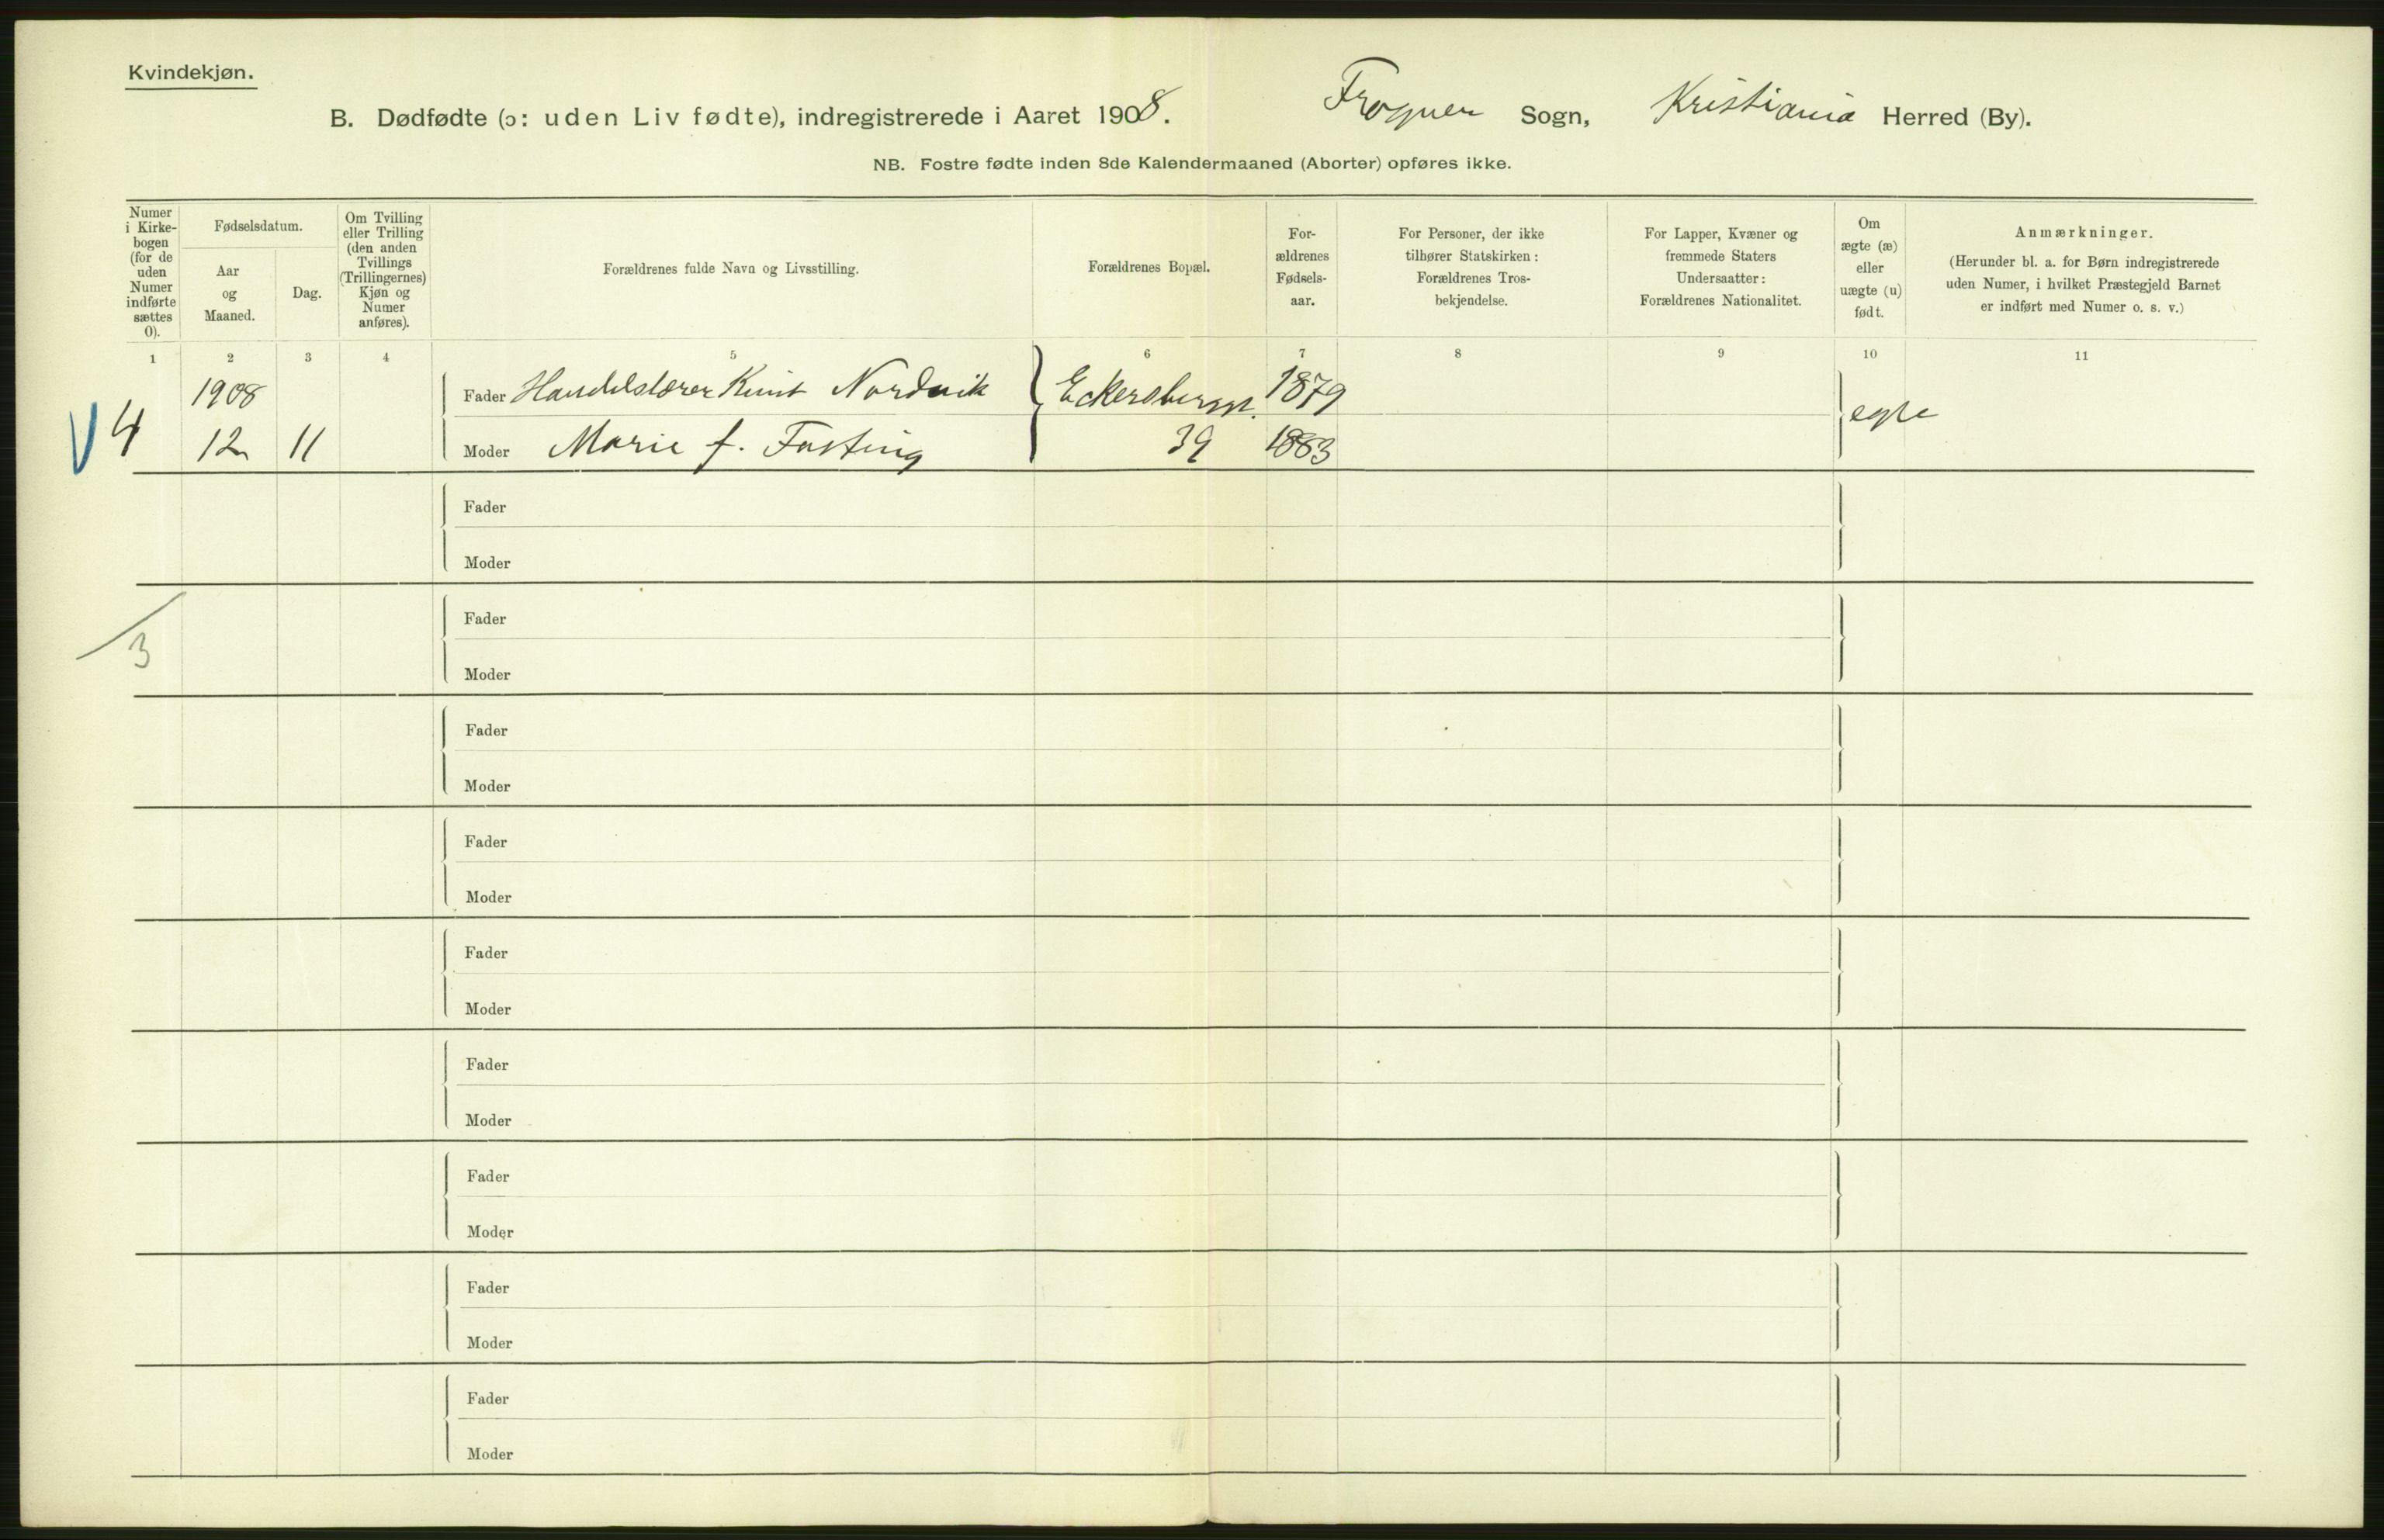 Kvindekjøn.
B. Dødfødte (ɔ: uden Liv fødte), indregistrerede i Aaret 1908. Frogner Sogn, Kristiania Herred (By).
NB. Fostre fødte inden 8de Kalendermaaned (Aborter) opføres ikke.
Numer
i Kirke-
bogen
(for de
uden
Numer
indførte
sættes
0).
Fødselsdatum.
Aar
og
Maaned.
Dag.
Om Tvilling
eller Trilling
(den anden
Tvillings
(Trillingernes)
Kjøn og
Numer
anføres).
Forældrenes fulde Navn og Livsstilling.
Forældrenes Bopæl.
For-
ældrenes
Fødsels-
aar.
For Personer, der ikke
tilhører Statskirken:
Forældrenes Tros-
bekjendelse.
For Lapper, Kvæner og
fremmede Staters
Undersaatter:
Forældrenes Nationalitet.
Om
ægte (æ)
eller
uægte (u)
født.
Anmærkninger.
(Herunder bl. a. for Børn indregistrerede
uden Numer, i hvilket Præstegjeld Barnet
er indført med Numer o. s. v.)
1 2 3 4 5 6 7 8 9 10 11
1908 Fader Handelslærer Knut Nordvik Eckersbergsgt. 1879 egte
4 12 11 Moder Marie f. Fasting 39 1883
Fader
Moder
Fader
3
Moder
Fader
Moder
Fader
Moder
Fader
Moder
Fader
Moder
Fader
Moder
Fader
Moder
Fader
Moder